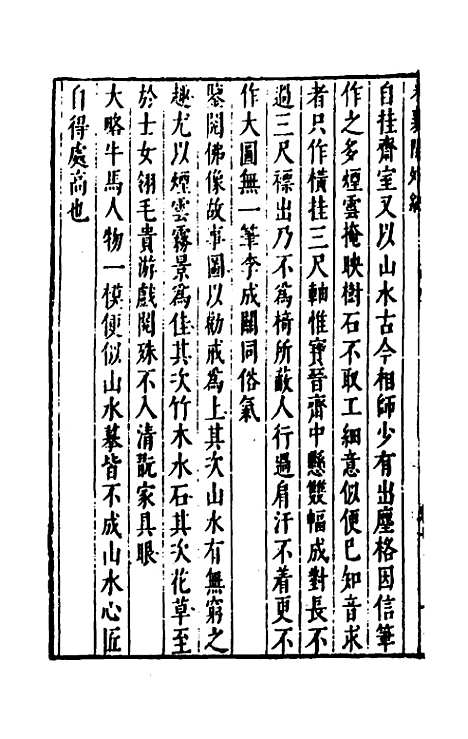 自挂齋室又以山水古今相師少有出塵格因信筆
作之多煙雲掩映樹石不取工細意似便已知音求
者只作橫挂三尺軸惟寳晉齋中懸雙幅成對長不
過三尺褾出乃不爲椅所蔽人行過肩汗不着更不
作大圖無一筆李成關同俗氣
鑒閱佛像故事圖以勸戒爲上其次山水有無窮之
趣尤以煙雲霧景爲佳其次竹木水石其次花草至
於士女翎毛貴游戲閱殊不入清翫家具眼
大略牛馬人物一模便似山水摹皆不成山水心匠
自得處高也